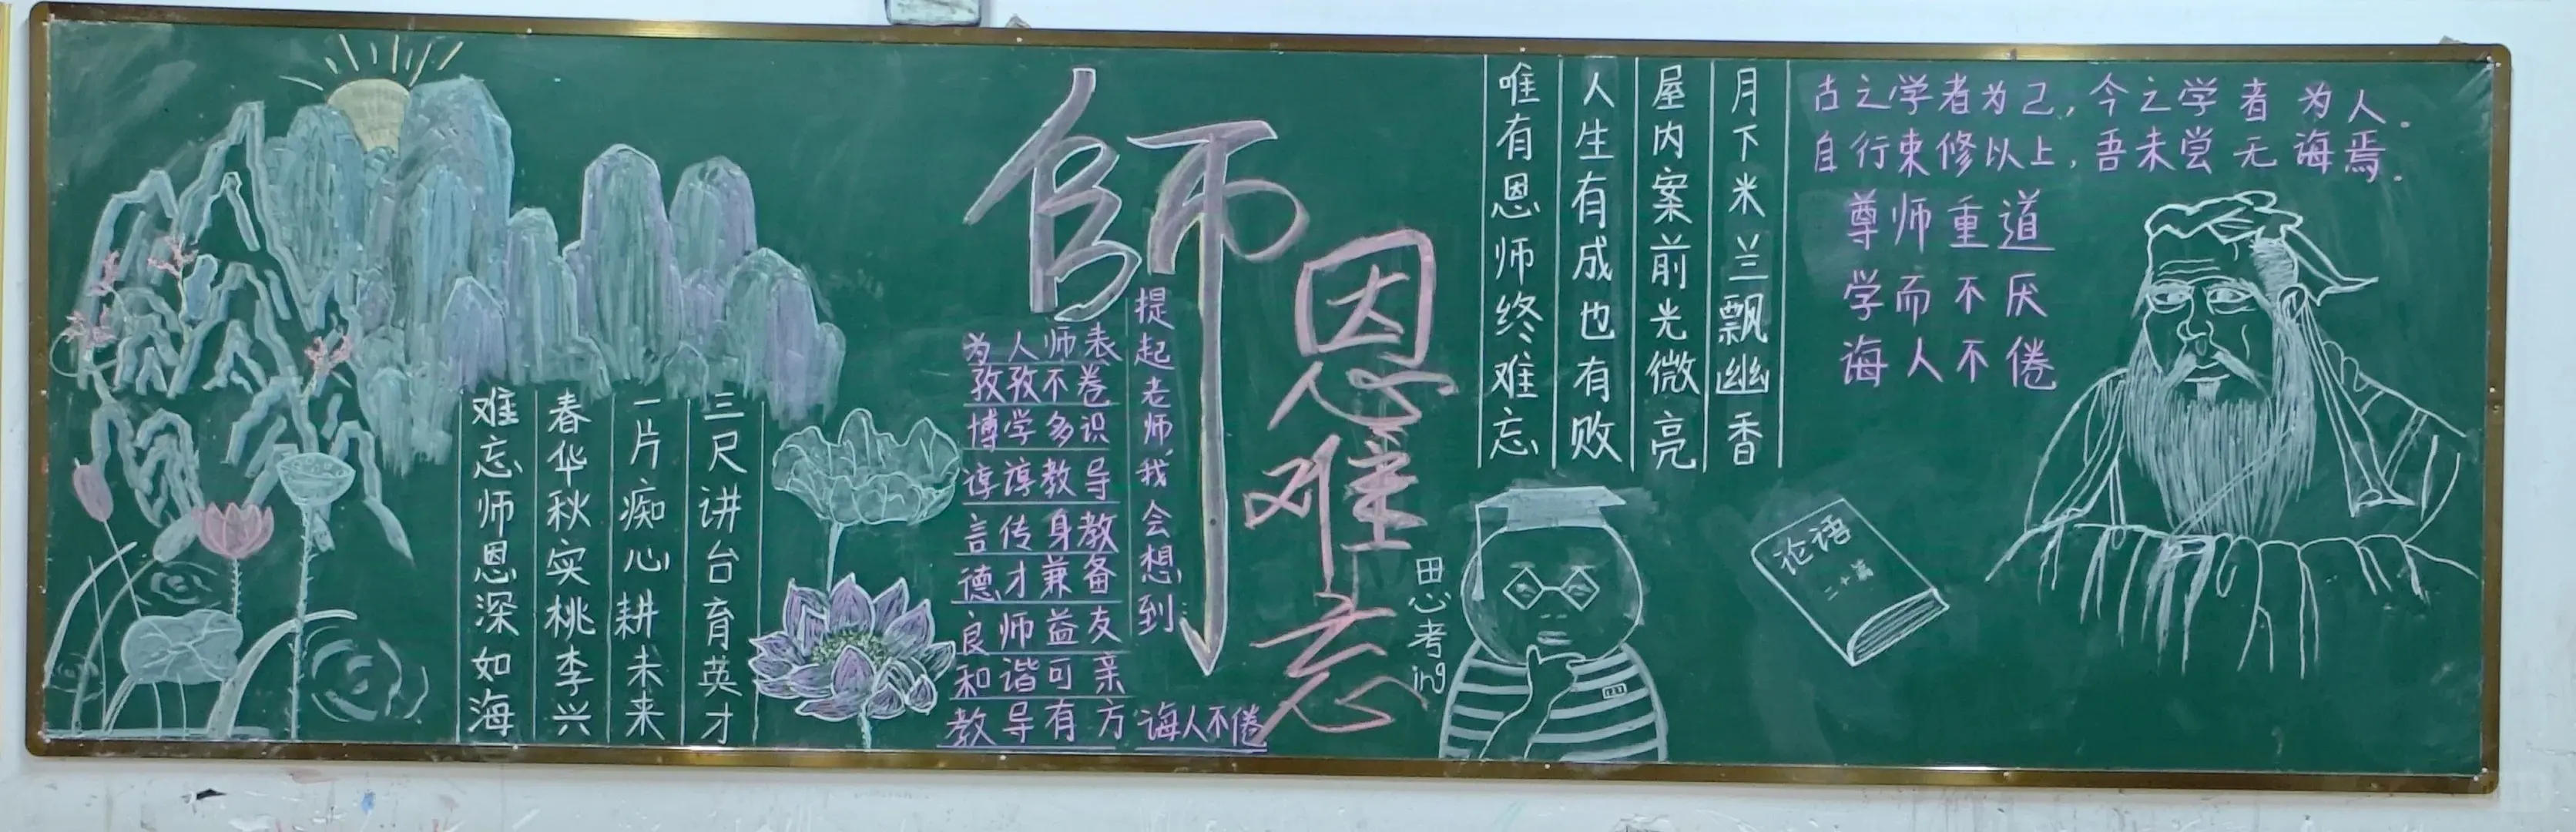 師恩难忘
三尺讲台育英才
一片痴心耕未来
春华秋实桃李兴
难忘师恩深如海
提起老师,我会想到
为人师表
孜孜不卷
博学多识
谆谆教导
言传身教
德才兼备
良师益友
和谐可亲
教导有方 诲人不倦
月下米兰飘幽香
屋内案前光微亮
人生有成也有败
唯有恩师终难忘
思考ing
古之学者为己,今之学者为人.
自行束修以上,吾未尝无诲焉.
尊师重道
学而不厌
诲人不倦
论语
二十篇